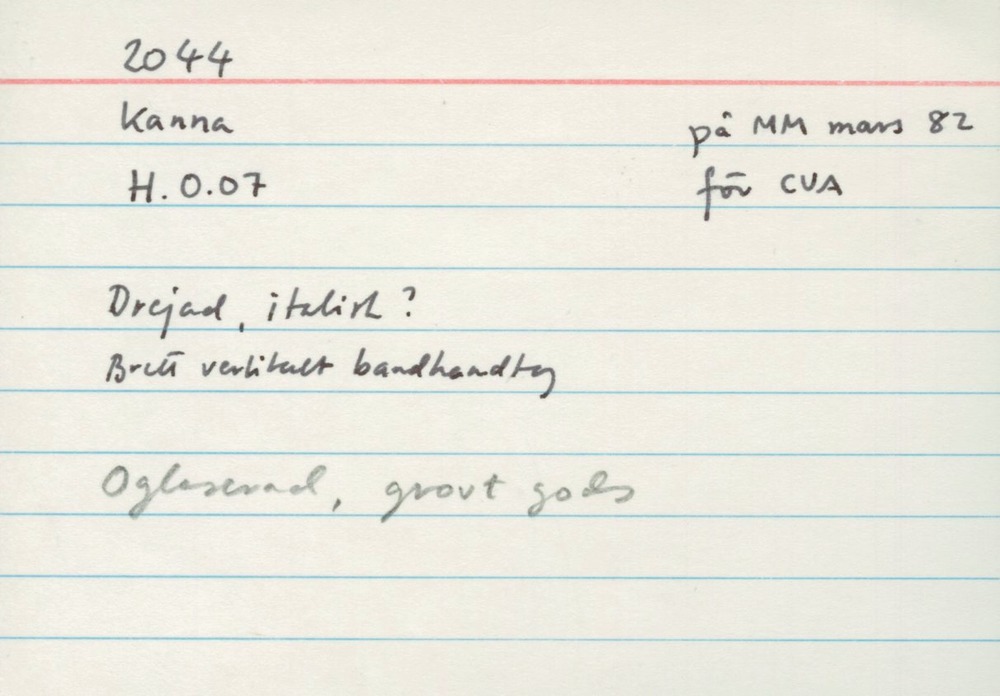 2044
Kanna
på MM mars 82
H. 0.07
för CVA
Drejad, italisk?
Brett vertikalt bandhandtag
Oglaserad, grovt gods